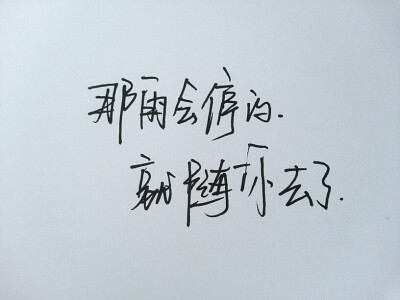 那雨会停的.
就随你去了.